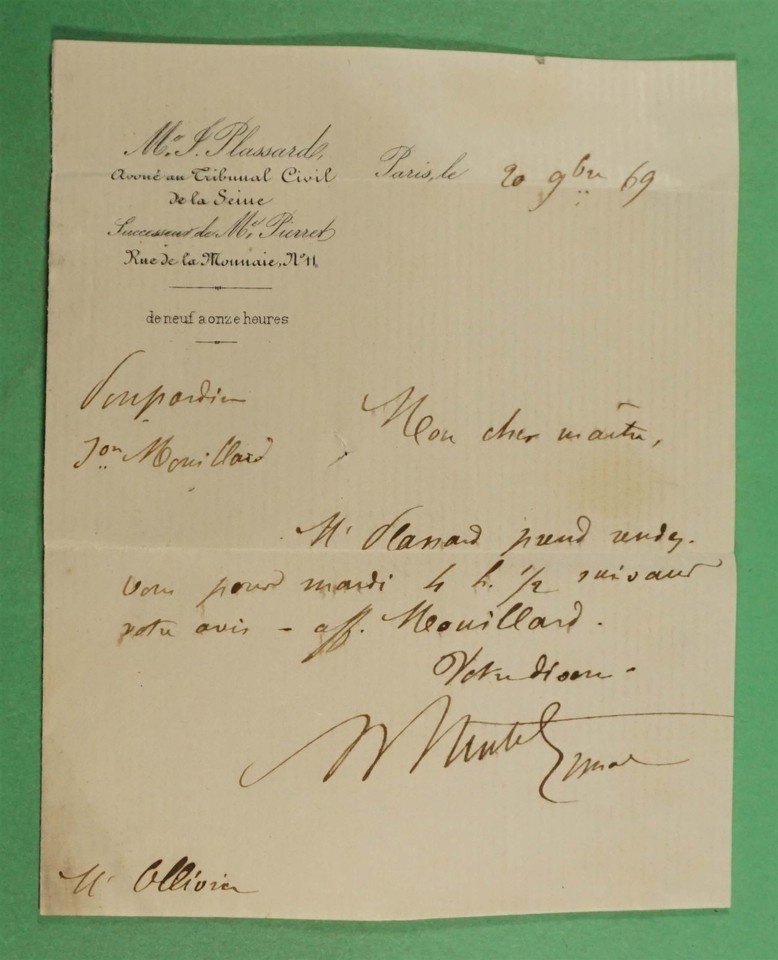 Me. J. Plassard,
Avoué au Tribunal Civil
de la Seine
Successeur de Me. Pierret
Rue de la Monnaie, No 11
de neuf a onze heures
Paris, le 20 9bre 69
Poupardin
Jon Mouillard
Mon cher maître,
Me Plassard prend rendez-
vous pour mardi 4 h. 1/2 suivant
votre avis - aff. Mouillard.
Votre
Me Ollivier